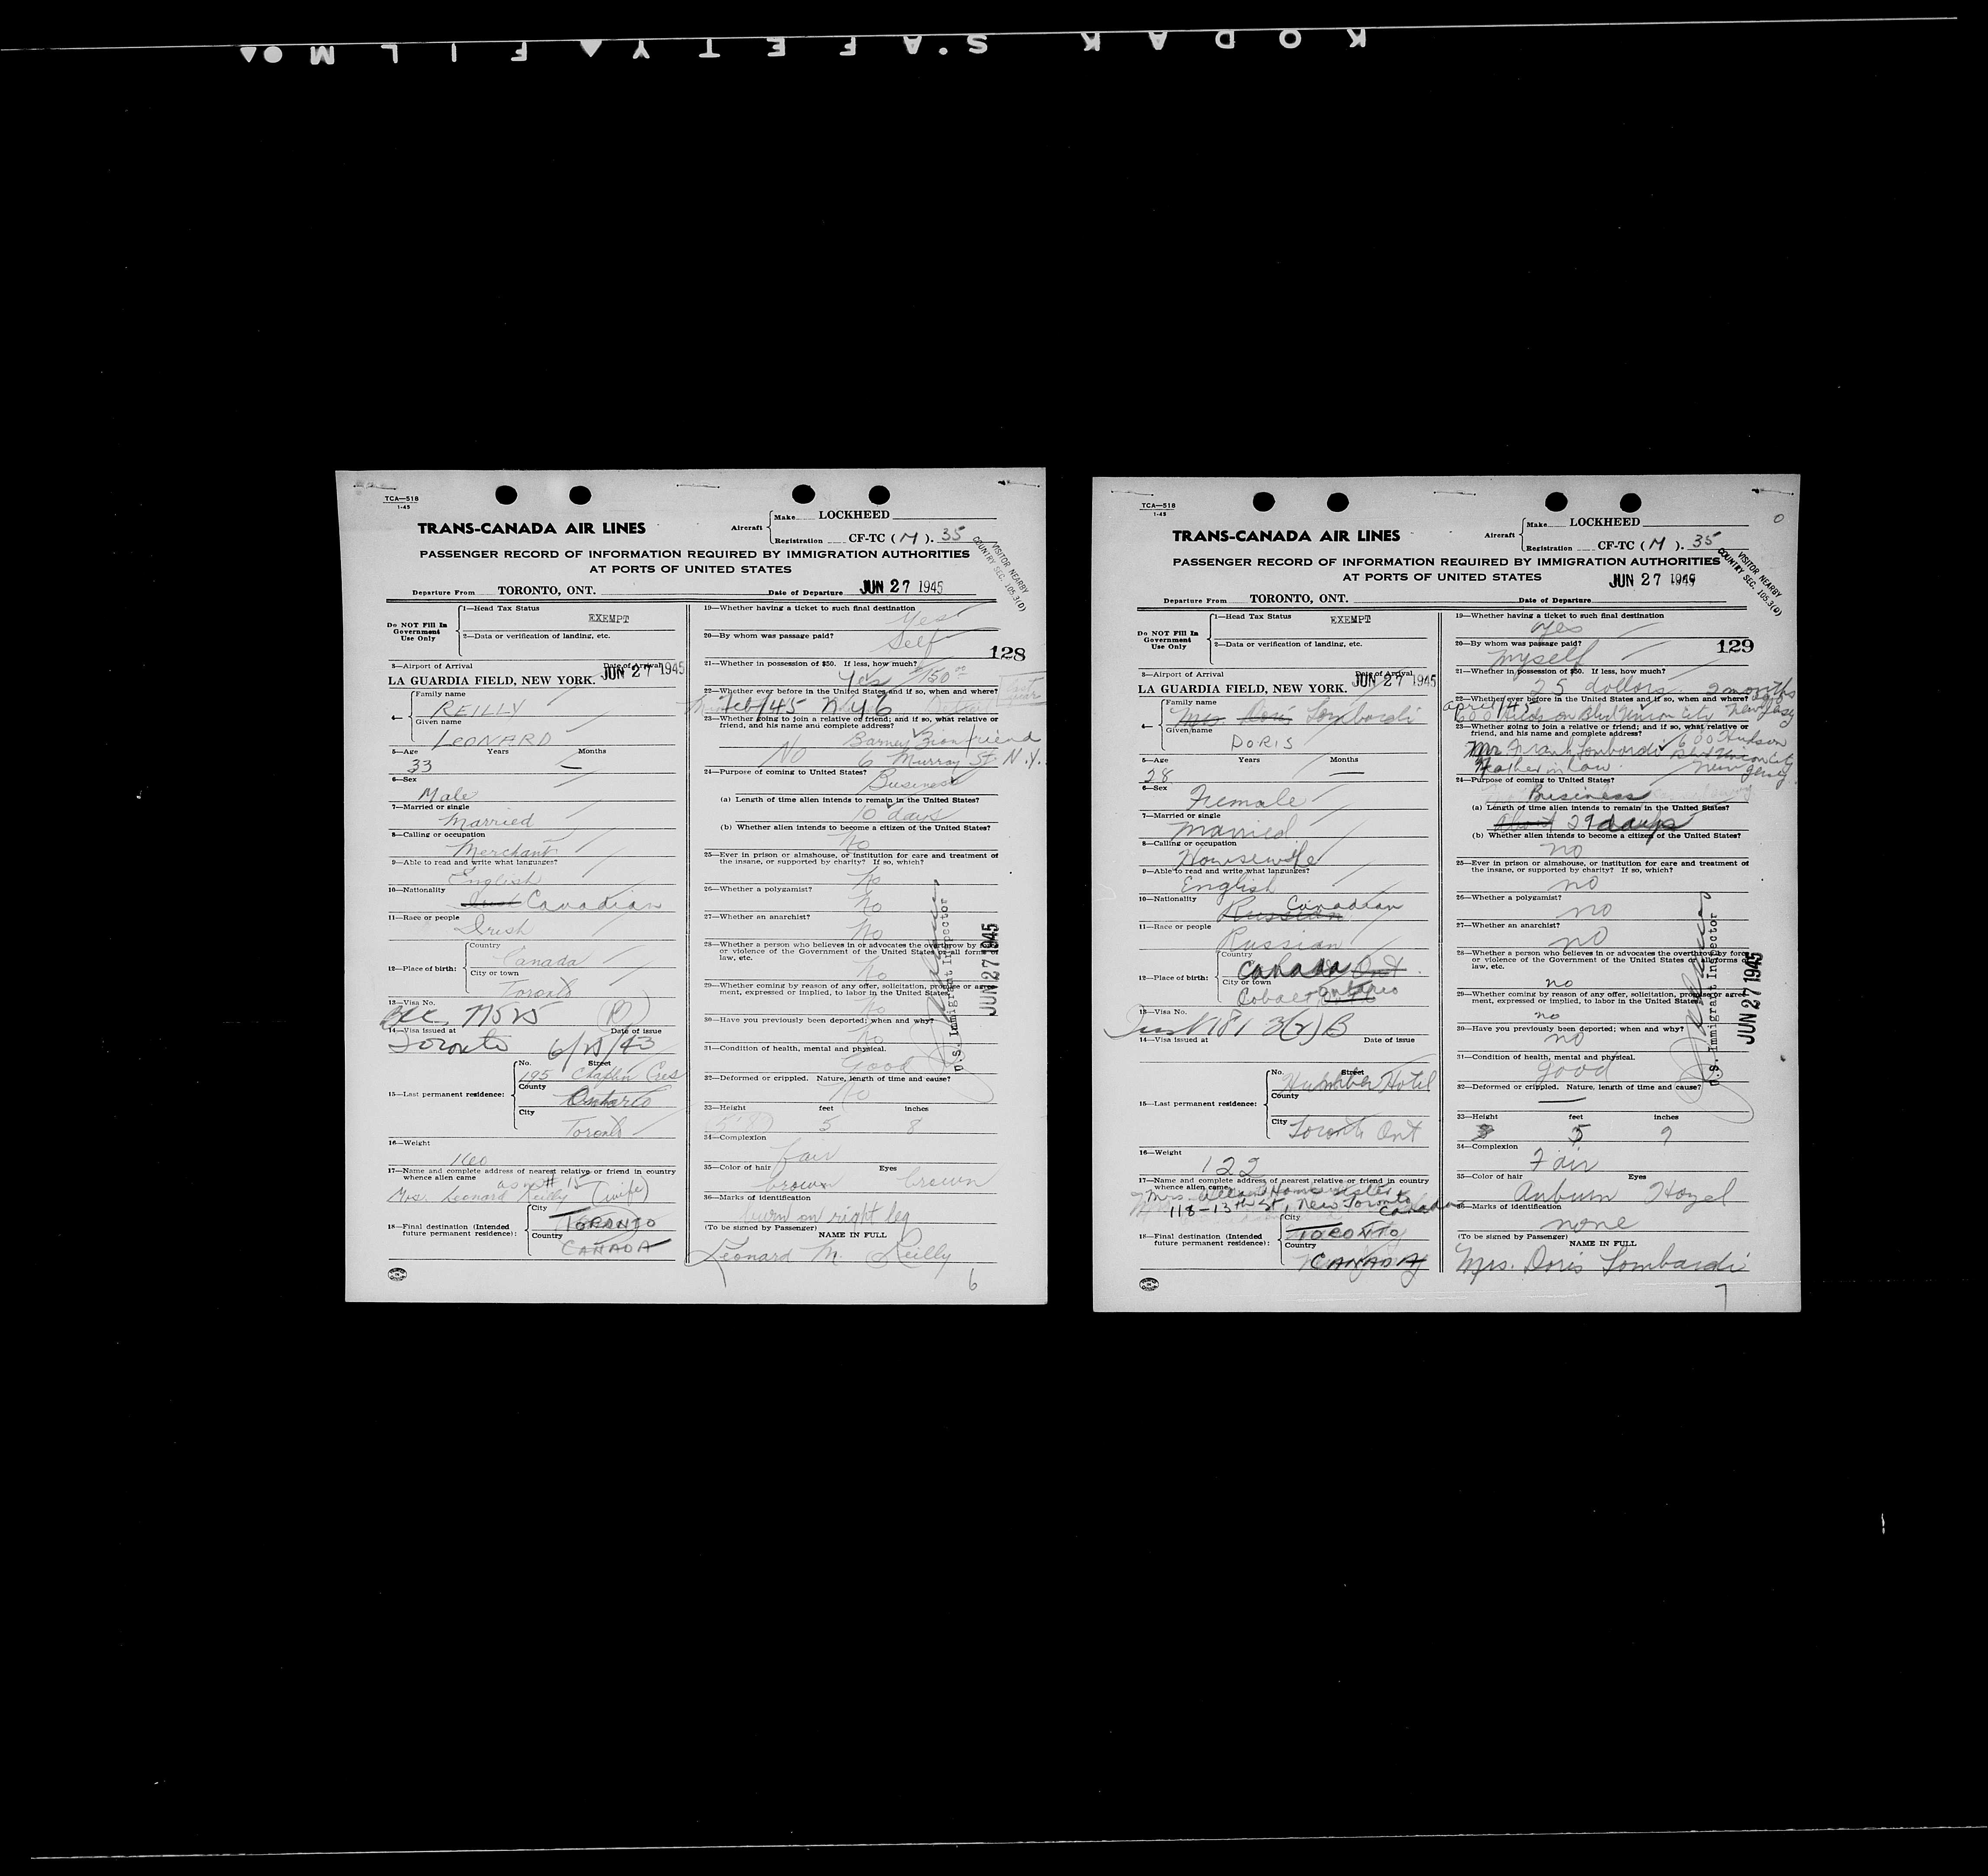 KODAK S'AFETY FILM
TCA—518
1-45
TRANS-CANADA AIR LINES
Aircraft
Make LOCKHEED
Registration CF-TC ( M ). 35
PASSENGER RECORD OF INFORMATION REQUIRED BY IMMIGRATION AUTHORITIES
AT PORTS OF UNITED STATES
VISITOR NEARBY
COUNTRY SEC. 105.3(D)
Departure From TORONTO, ONT. Date of Departure JUN 27 1945
Do NOT Fill In Government Use Only
1—Head Tax Status EXEMPT
2—Data or verification of landing, etc.
3—Airport of Arrival Date of Arrival
LA GUARDIA FIELD, NEW YORK. JUN 27 1945
4— Family name
REILLY
Given name
LEONARD
5—Age Years Months
33 —
6—Sex
Male
7—Married or single
Married
8—Calling or occupation
Merchant
9—Able to read and write what languages?
English
10—Nationality
Canadian
11—Race or people
Irish
12—Place of birth: Country
Canada
City or town
Toronto
13—Visa No.
14—Visa issued at Date of issue
Toronto
15—Last permanent residence:
No. Street
195 Chaplin Cres
County
Ontario
City
Toronto
16—Weight
160
17—Name and complete address of nearest relative or friend in country whence alien came
as no # 15
Mrs. Leonard Reilly (wife)
18—Final destination (Intended future permanent residence):
City
TORONTO
Country
CANADA
19—Whether having a ticket to such final destination
Yes
20—By whom was passage paid?
Self
128
21—Whether in possession of $50. If less, how much?
Yes $150.00
22—Whether ever before in the United States and if so, when and where?
Feb/45 N.Y.
23—Whether going to join a relative or friend; and if so, what relative or friend, and his name and complete address?
No
Barney Zion friend
6 Murray St. N.Y.
24—Purpose of coming to United States?
Business
(a) Length of time alien intends to remain in the United States?
10 days
(b) Whether alien intends to become a citizen of the United States?
No
25—Ever in prison or almshouse, or institution for care and treatment of the insane, or supported by charity? If so, which?
No
26—Whether a polygamist?
No
27—Whether an anarchist?
No
28—Whether a person who believes in or advocates the overthrow by force or violence of the Government of the United States or all forms of law, etc.
No
29—Whether coming by reason of any offer, solicitation, promise or agreement, expressed or implied, to labor in the United States
No
30—Have you previously been deported; when and why?
No
31—Condition of health, mental and physical.
Good
32—Deformed or crippled. Nature, length of time and cause?
No
33—Height feet inches
5 8
34—Complexion
fair
35—Color of hair Eyes
brown brown
36—Marks of identification
burn on right leg
(To be signed by Passenger) NAME IN FULL
Leonard M. Reilly
6
U.S. Immigrant Inspector
JUN 27 1945
TCA—518
1-45
TRANS-CANADA AIR LINES
Aircraft
Make LOCKHEED
Registration CF-TC ( M ). 35
PASSENGER RECORD OF INFORMATION REQUIRED BY IMMIGRATION AUTHORITIES
AT PORTS OF UNITED STATES
VISITOR NEARBY
COUNTRY SEC. 105.3(D)
JUN 27 1945
Departure From TORONTO, ONT. Date of Departure
Do NOT Fill In Government Use Only
1—Head Tax Status EXEMPT
2—Data or verification of landing, etc.
3—Airport of Arrival Date of Arrival
LA GUARDIA FIELD, NEW YORK. JUN 27 1945
4— Family name
Mrs. Doris Lombardi
Given name
DORIS
5—Age Years Months
28 —
6—Sex
Female
7—Married or single
Married
8—Calling or occupation
Housewife
9—Able to read and write what languages?
English
10—Nationality
Russian Canadian
11—Race or people
Russian
12—Place of birth: Country
Canada Ont.
City or town
Cobalt Ontario
13—Visa No.
14—Visa issued at Date of issue
15—Last permanent residence:
No. Street
Humber Hotel
County
City
Toronto Ont
16—Weight
122
17—Name and complete address of nearest relative or friend in country whence alien came
118-13th St, New Toronto Canada
18—Final destination (Intended future permanent residence):
City
TORONTO
Country
CANADA
19—Whether having a ticket to such final destination
yes
20—By whom was passage paid?
myself
129
21—Whether in possession of $50. If less, how much?
25 dollars
22—Whether ever before in the United States and if so, when and where?
2 months
april/45
600 Hudson Blvd Union City New Jersey
23—Whether going to join a relative or friend; and if so, what relative or friend, and his name and complete address?
Mr Frank Lombardi 600 Hudson Blvd Union City New Jersey
Father in law.
24—Purpose of coming to United States?
Business
(a) Length of time alien intends to remain in the United States?
About 29 days
(b) Whether alien intends to become a citizen of the United States?
no
25—Ever in prison or almshouse, or institution for care and treatment of the insane, or supported by charity? If so, which?
no
26—Whether a polygamist?
no
27—Whether an anarchist?
no
28—Whether a person who believes in or advocates the overthrow by force or violence of the Government of the United States or all forms of law, etc.
no
29—Whether coming by reason of any offer, solicitation, promise or agreement, expressed or implied, to labor in the United States
no
30—Have you previously been deported; when and why?
no
31—Condition of health, mental and physical.
good
32—Deformed or crippled. Nature, length of time and cause?
—
33—Height feet inches
5 9
34—Complexion
Fair
35—Color of hair Eyes
Auburn Hazel
36—Marks of identification
none
(To be signed by Passenger) NAME IN FULL
Mrs. Doris Lombardi
7
U.S. Immigrant Inspector
JUN 27 1945